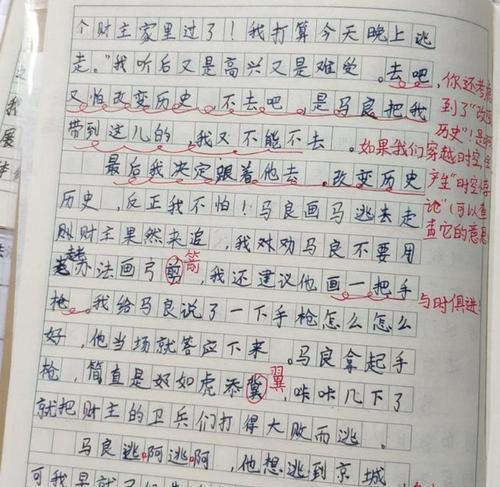 个财主家里过了！我打算今天晚上逃
走。”我听后又是高兴又是难受。去吧，
又怕改变历史，不去吧，是马良把我
带到这儿的，我又不能不去。
最后我决定跟着他去。改变历史
历史，反正我不怕！马良画马逃去走
刚财主果然来追，我对劝马良不要用
老办法画弓箭，我还建议他画一把手
枪。我给马良说了一下手枪怎么怎么
好，他当场就答应下来。马良拿起手
枪，简直是好如虎添冀，咔咔几下了
就把财主的卫兵们打得大败而逃。
马良逃啊逃啊，他想逃到京城
可我早就了
你还考
到了“改变
历史”！是
如果我们穿越时空，
产生“时空悖
论”（可以查
查它的意思
箭
与时俱进
翼